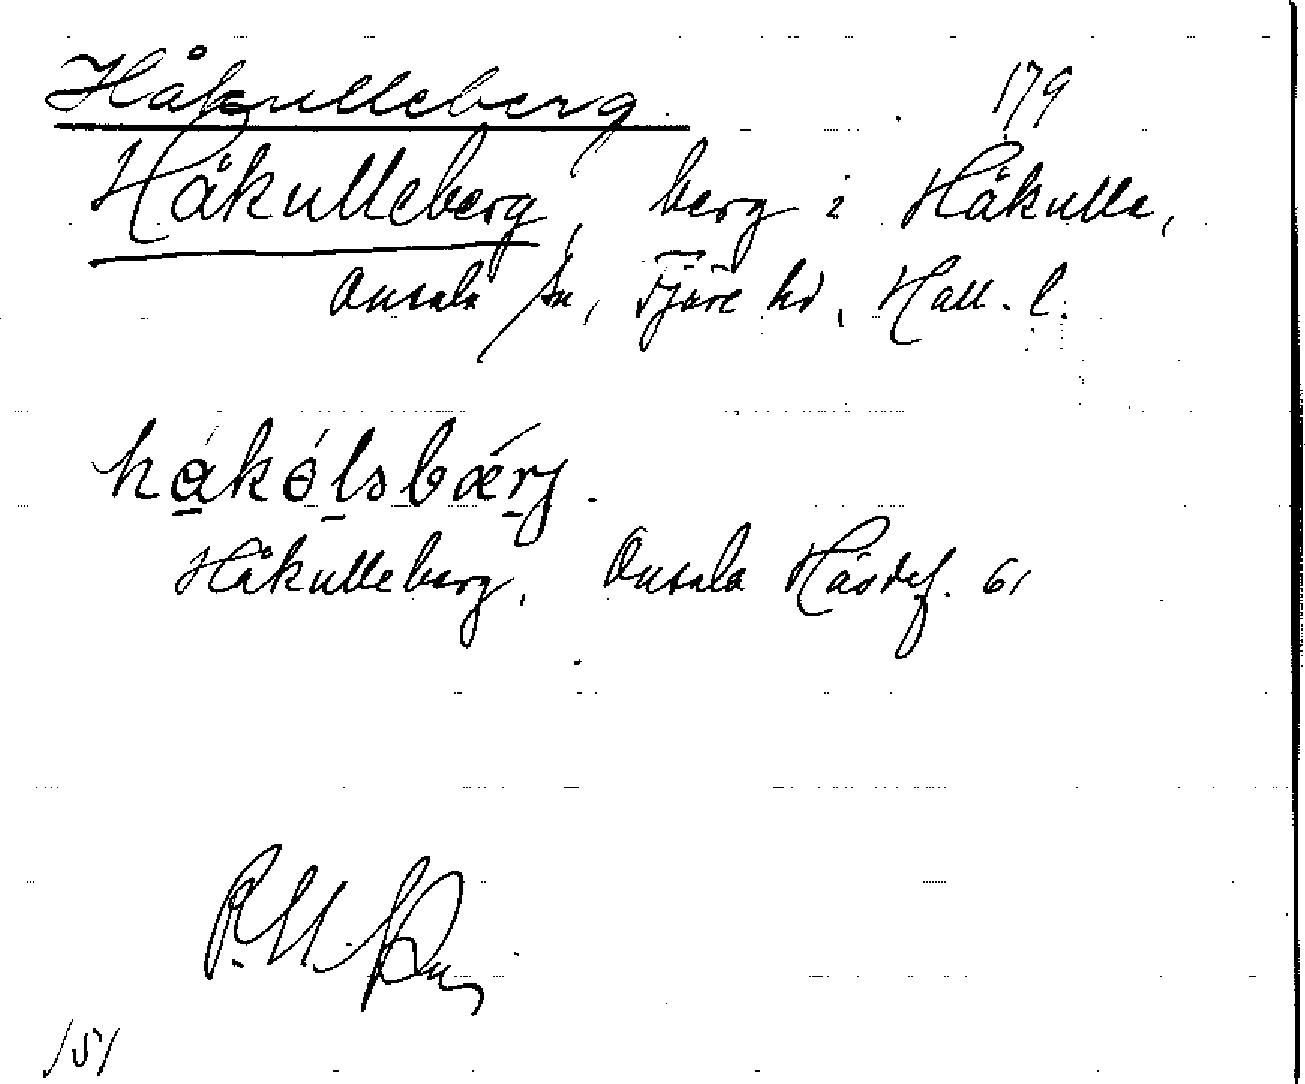 Håkulleberg
179
Håkulleberg, berg i Håkulle,
Onsala sn, Fjäre hd, Hall. l.
håkólsbærj.
Håkulleberg, Onsala Häradsk. 61
151